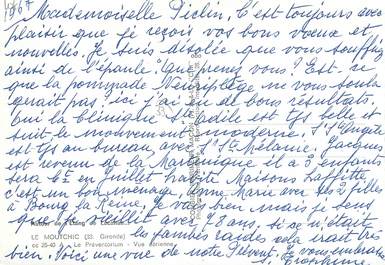 1967
Mademoiselle Piclin, C'est toujours avec
plaisir que je reçois vos bons vœux et
nouvelles. Je suis désolée que vous souffriez
ainsi de l'épaule. Que prenez vous? Est-ce
que la pommade ne vous soula
gerait pas? ici j'ai eu de bons résultats.
Oui la clinique St Odile est tjs belle et
suit le mouvement moderne. Sr
est tjs au bureau avec Sr Mélanie. Jacques
est revenu de la Martinique il a 3 enfants
sera le en juillet Maisons Laffitte
c'est un bon ménage, Anne Marie avec ses 2 filles
à Bourg la Reine. Je vais bien mais je sens
que je vieillis avec 78 ans, si ce n'était
les jambes raides cela irait très
bien. Voici une vue de notre Prévent. Je vous embrasse
LE MOUTCHIC (33. Gironde)
Le Préventorium - Vue aérienne